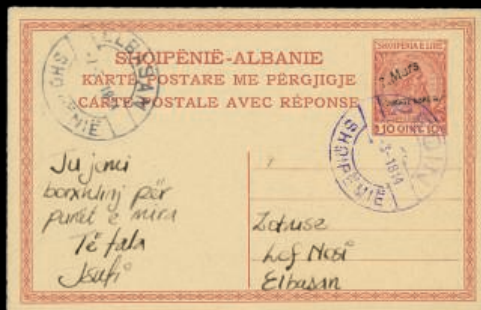 SHQIPËNIË-ALBANIE
KARTË POSTARE ME PËRGJIGJE
CARTE POSTALE AVEC RÉPONSE
SHQIPENIA E LIRE
7. Mars
10 QINT 10
ELBASAN
SHQIPENIE
SHQIPENIE
3-1914
Ju jemi
borxhlinj për
punët e mira
Të fala
Jsufi
Zotnise
Lef Nosi
Elbasan